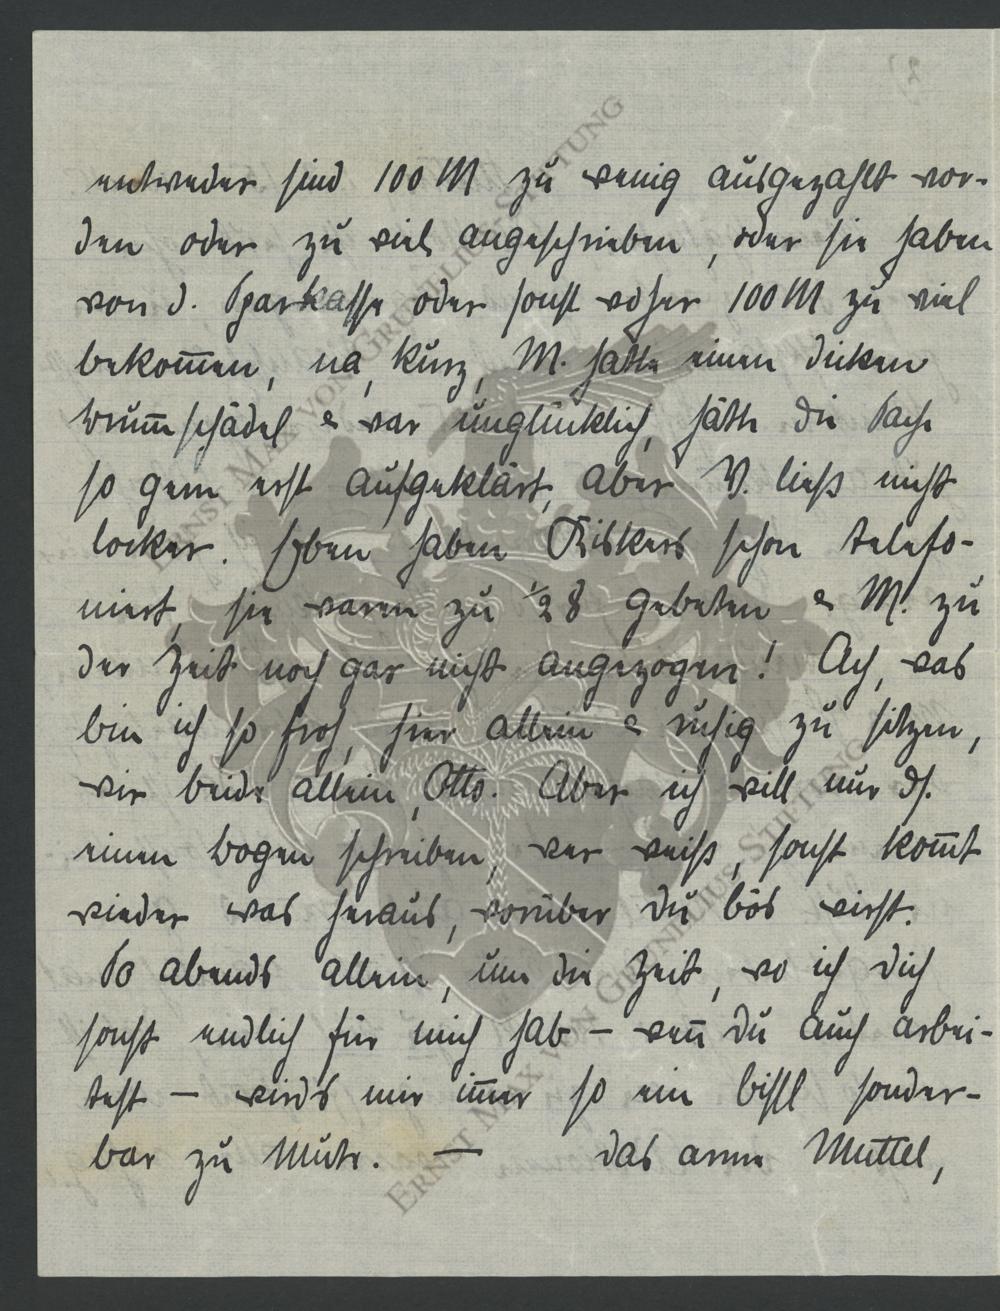 entweder sind 100 M zu wenig ausgezahlt wor-
den oder zu viel angeschrieben, oder sie haben
von d. Sparkasse oder sonst woher 100 M zu viel
bekom̅en, na, kurz, M. hatte einen dicken
Brum̅schädel & war unglücklich, hätte die Sache
so gern erst aufgeklärt, aber V. liess nicht
locker. Eben haben Riskers schon telefo-
niert, sie waren zu ½8 gebeten & M. zu
der Zeit noch gar nicht angezogen! Ach, was
bin ich so froh, hier allein & ruhig zu sitzen,
wir beide allein, Otto. Aber ich will nur ds.
einen bogen schreiben, wer weiss, sonst kom̅t
wieder was heraus, worüber du bös wirst.
So abends allein, um die Zeit, wo ich dich
sonst endlich für mich hab – wen̅ du auch arbei-
test – wirds mir im̅er so ein bissl sonder-
bar zu Mute. — das arme Muttel,
ERNST MAX VON GRUNELIUS-STIFTUNG
ERNST MAX VON GRUNELIUS-STIFTUNG